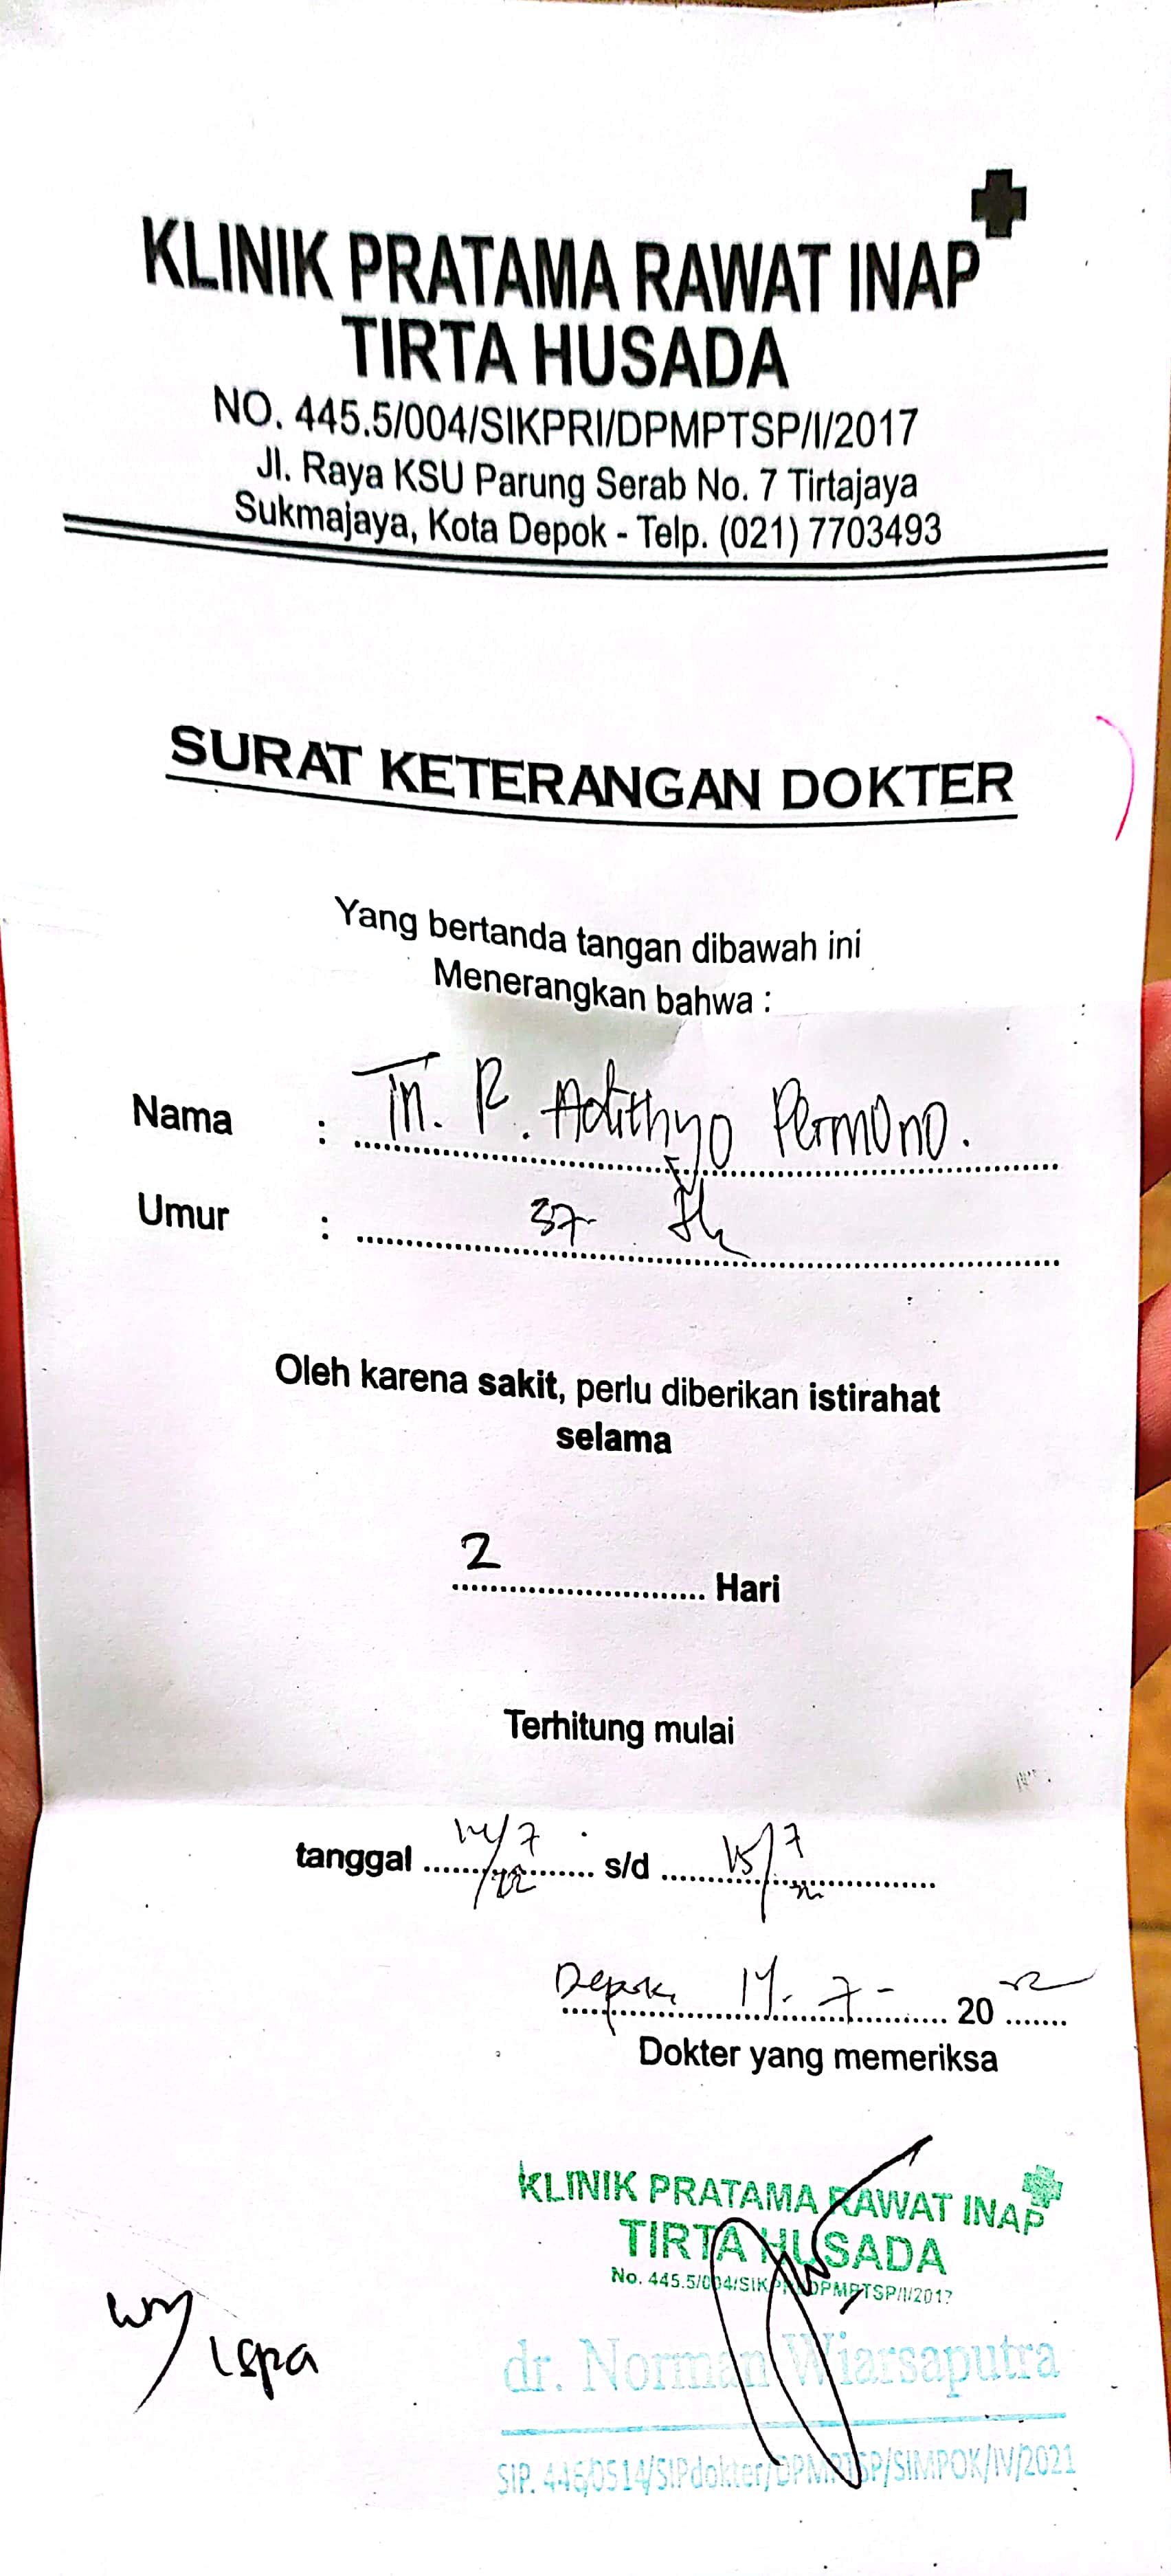 KLINIK PRATAMA RAWAT INAP
TIRTA HUSADA
NO. 445.5/004/SIKPRI/DPMPTSP/I/2017
Jl. Raya KSU Parung Serab No. 7 Tirtajaya
Sukmajaya, Kota Depok - Telp. (021) 7703493
SURAT KETERANGAN DOKTER
Yang bertanda tangan dibawah ini
Menerangkan bahwa :
Nama : Tn. R. Adithyo Permono.
Umur : 37 th
Oleh karena sakit, perlu diberikan istirahat
selama
2 Hari
Terhitung mulai
tanggal 14/7/22 s/d 15/7/22
Depok, 14-7-2022
Dokter yang memeriksa
KLINIK PRATAMA RAWAT INAP
TIRTA HUSADA
No. 445.5/004/SIKPRI/DPMPTSP/I/2017
ispa
dr. Norman Wiarsaputra
SIP. 446/0514/SIPdokter/DPMPTSP/SIMPOK/IV/2021